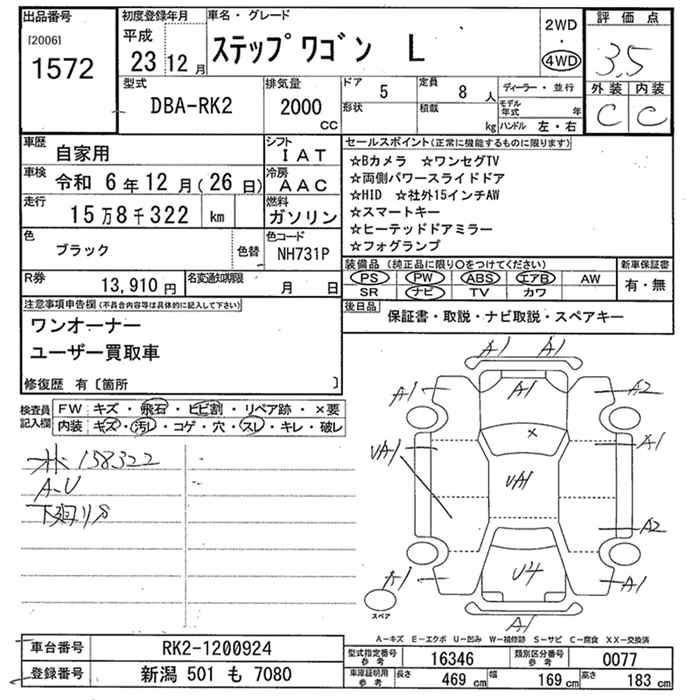 出品番号 初度登録年月 車名・グレード 2WD 評価点
[2006] 平成 ・
1572 23 12月 ステップワゴン L 4WD 3.5
型式 排気量 ドア 5 定員 8人 ディーラー・並行 外装 内装
DBA-RK2 2000 CC 形状 積載 kg モデル年式 年 C C
ハンドル 左・右
車歴 自家用 シフト IAT セールスポイント(正常に機能するものに限ります)
車検 令和 6年12月(26日) 冷房 AAC ☆Bカメラ ☆ワンセグTV
走行 15万8千322 km 燃料 ガソリン ☆両側パワースライドドア
☆HID ☆社外15インチAW
☆スマートキー
色 ブラック 色替 色コード NH731P ☆ヒーテッドドアミラー
☆フォグランプ
R券 13,910円 名変通知期限 月 日 装備品(純正品に限り〇をつけてください) 新車保証書
PS PW ABS エアB AW 有・無
SR ナビ TV カワ
注意事項申告欄(不具合内容等は具体的に記入して下さい) 後日品 保証書・取説・ナビ取説・スペアキー
ワンオーナー
ユーザー買取車
修復歴 有〔箇所 〕
検査員記入欄 FW キズ・飛石・ヒビ割・リペア跡・×要
内装 キズ・汚レ・コゲ・穴・スレ・キレ・破レ
158322
A-U
下廻りS
A1 A1
A1 A1 A2
UA1 × A1
UA1
A2
A1 U4 A1
スペア A1
A-キズ E-エクボ U-凹み W-補修跡 S-サビ C-腐食 XX-交換済
車台番号 RK2-1200924 型式指定番号 参考 16346 類別区分番号 参考 0077
登録番号 新潟 501 も 7080 車庫証明用 参考 長さ 469 cm 幅 169 cm 高さ 183 cm